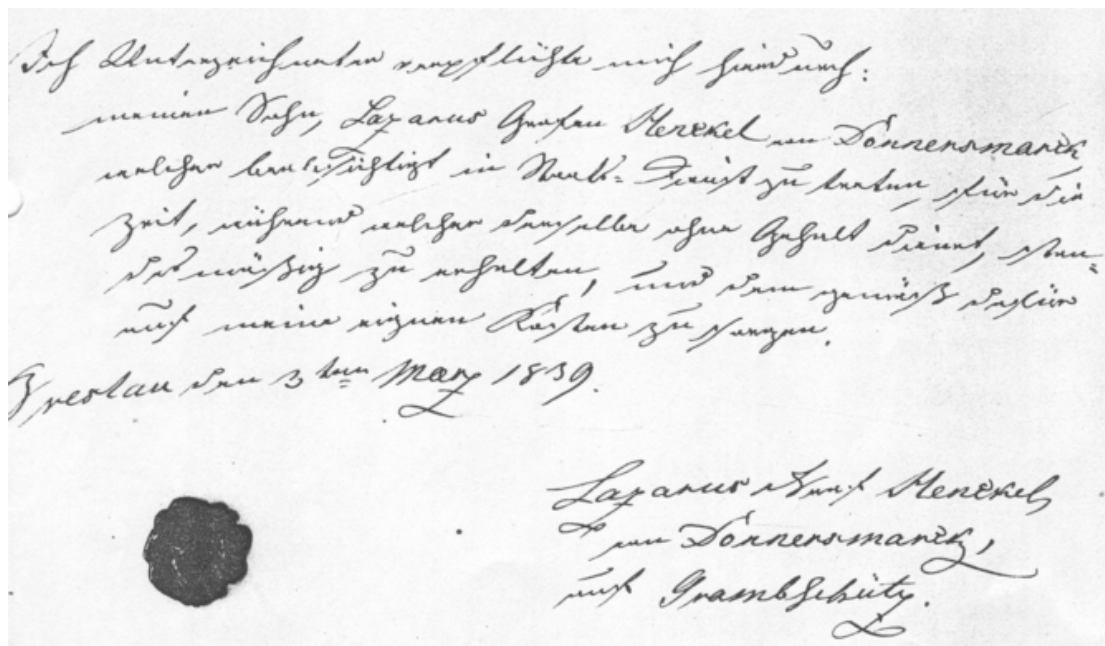 Ich Unterzeichneter verpflichte mich hierdurch:
meinen Sohn, Lazarus Grafen Henckel von Donnersmarck,
welcher beabsichtigt in Staats-Dienst zu treten, für die
Zeit, während welcher derselbe ohne Gehalt dienet, stan-
desmäßig zu erhalten, und dem gemäß dafür
auf meine eignen Kosten zu sorgen.
Breslau den 3ten März 1839.
Lazarus Graf Henckel
von Donnersmarck,
auf Grambschütz.